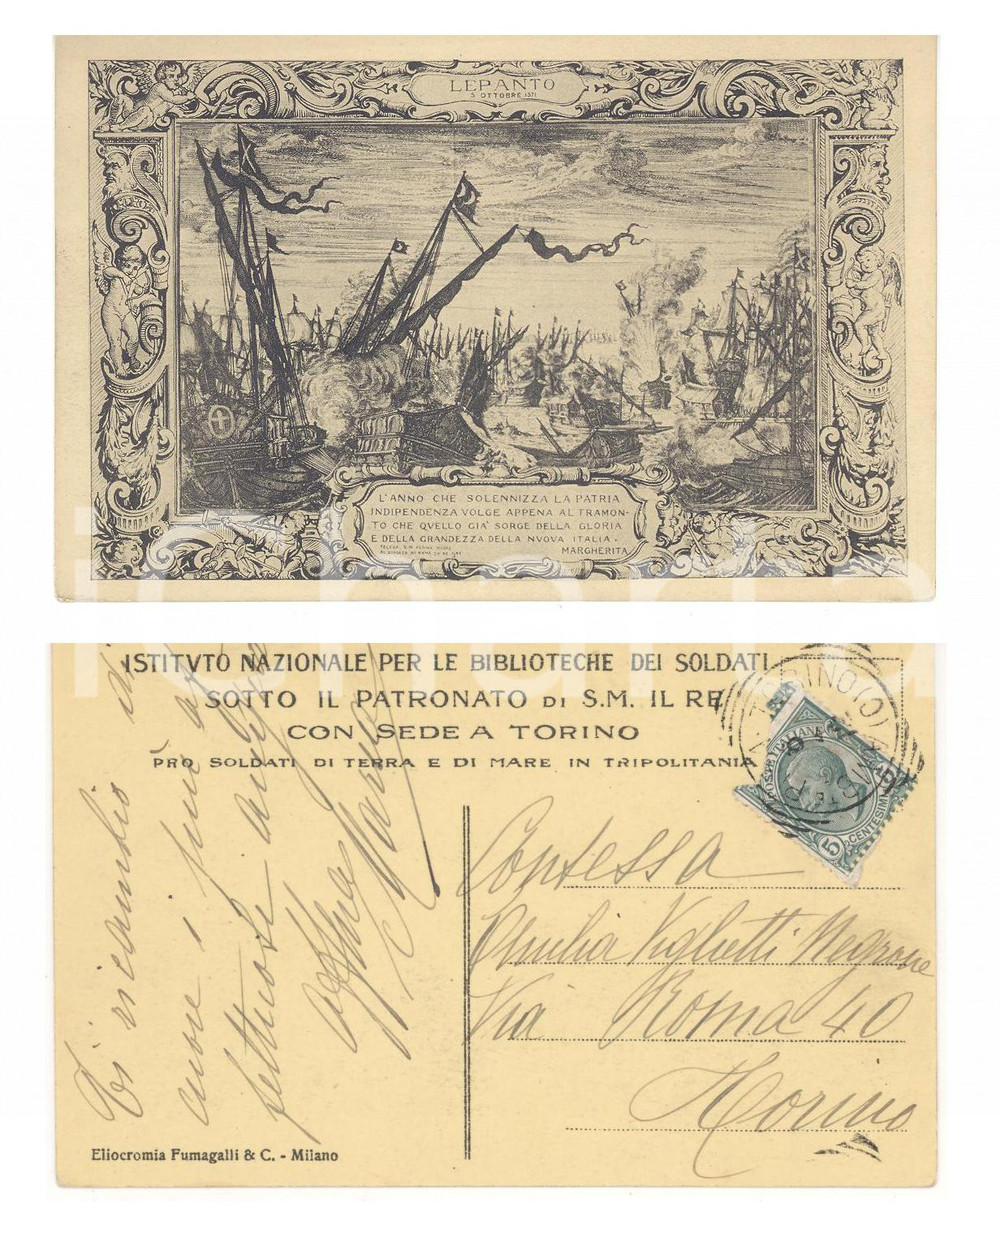 LEPANTO
5 OTTOBRE 1571
L'ANNO CHE SOLENNIZZA LA PATRIA
INDIPENDENZA VOLGE APPENA AL TRAMON-
TO CHE QVELLO GIA' SORGE DELLA GLORIA
E DELLA GRANDEZZA DELLA NVOVA ITALIA.
MARGHERITA
ISTITVTO NAZIONALE PER LE BIBLIOTECHE DEI SOLDATI
SOTTO IL PATRONATO DI S.M. IL RE
CON SEDE A TORINO
PRO SOLDATI DI TERRA E DI MARE IN TRIPOLITANIA
TORINO
POSTE ITALIANE
CENTESIMI
5
Ti ricambiò di
cuore i più
affettuosi auguri
Contessa
Emilia Viglietti Negrone
Via Roma 40
Torino
Eliocromia Fumagalli & C. - Milano
iCharta